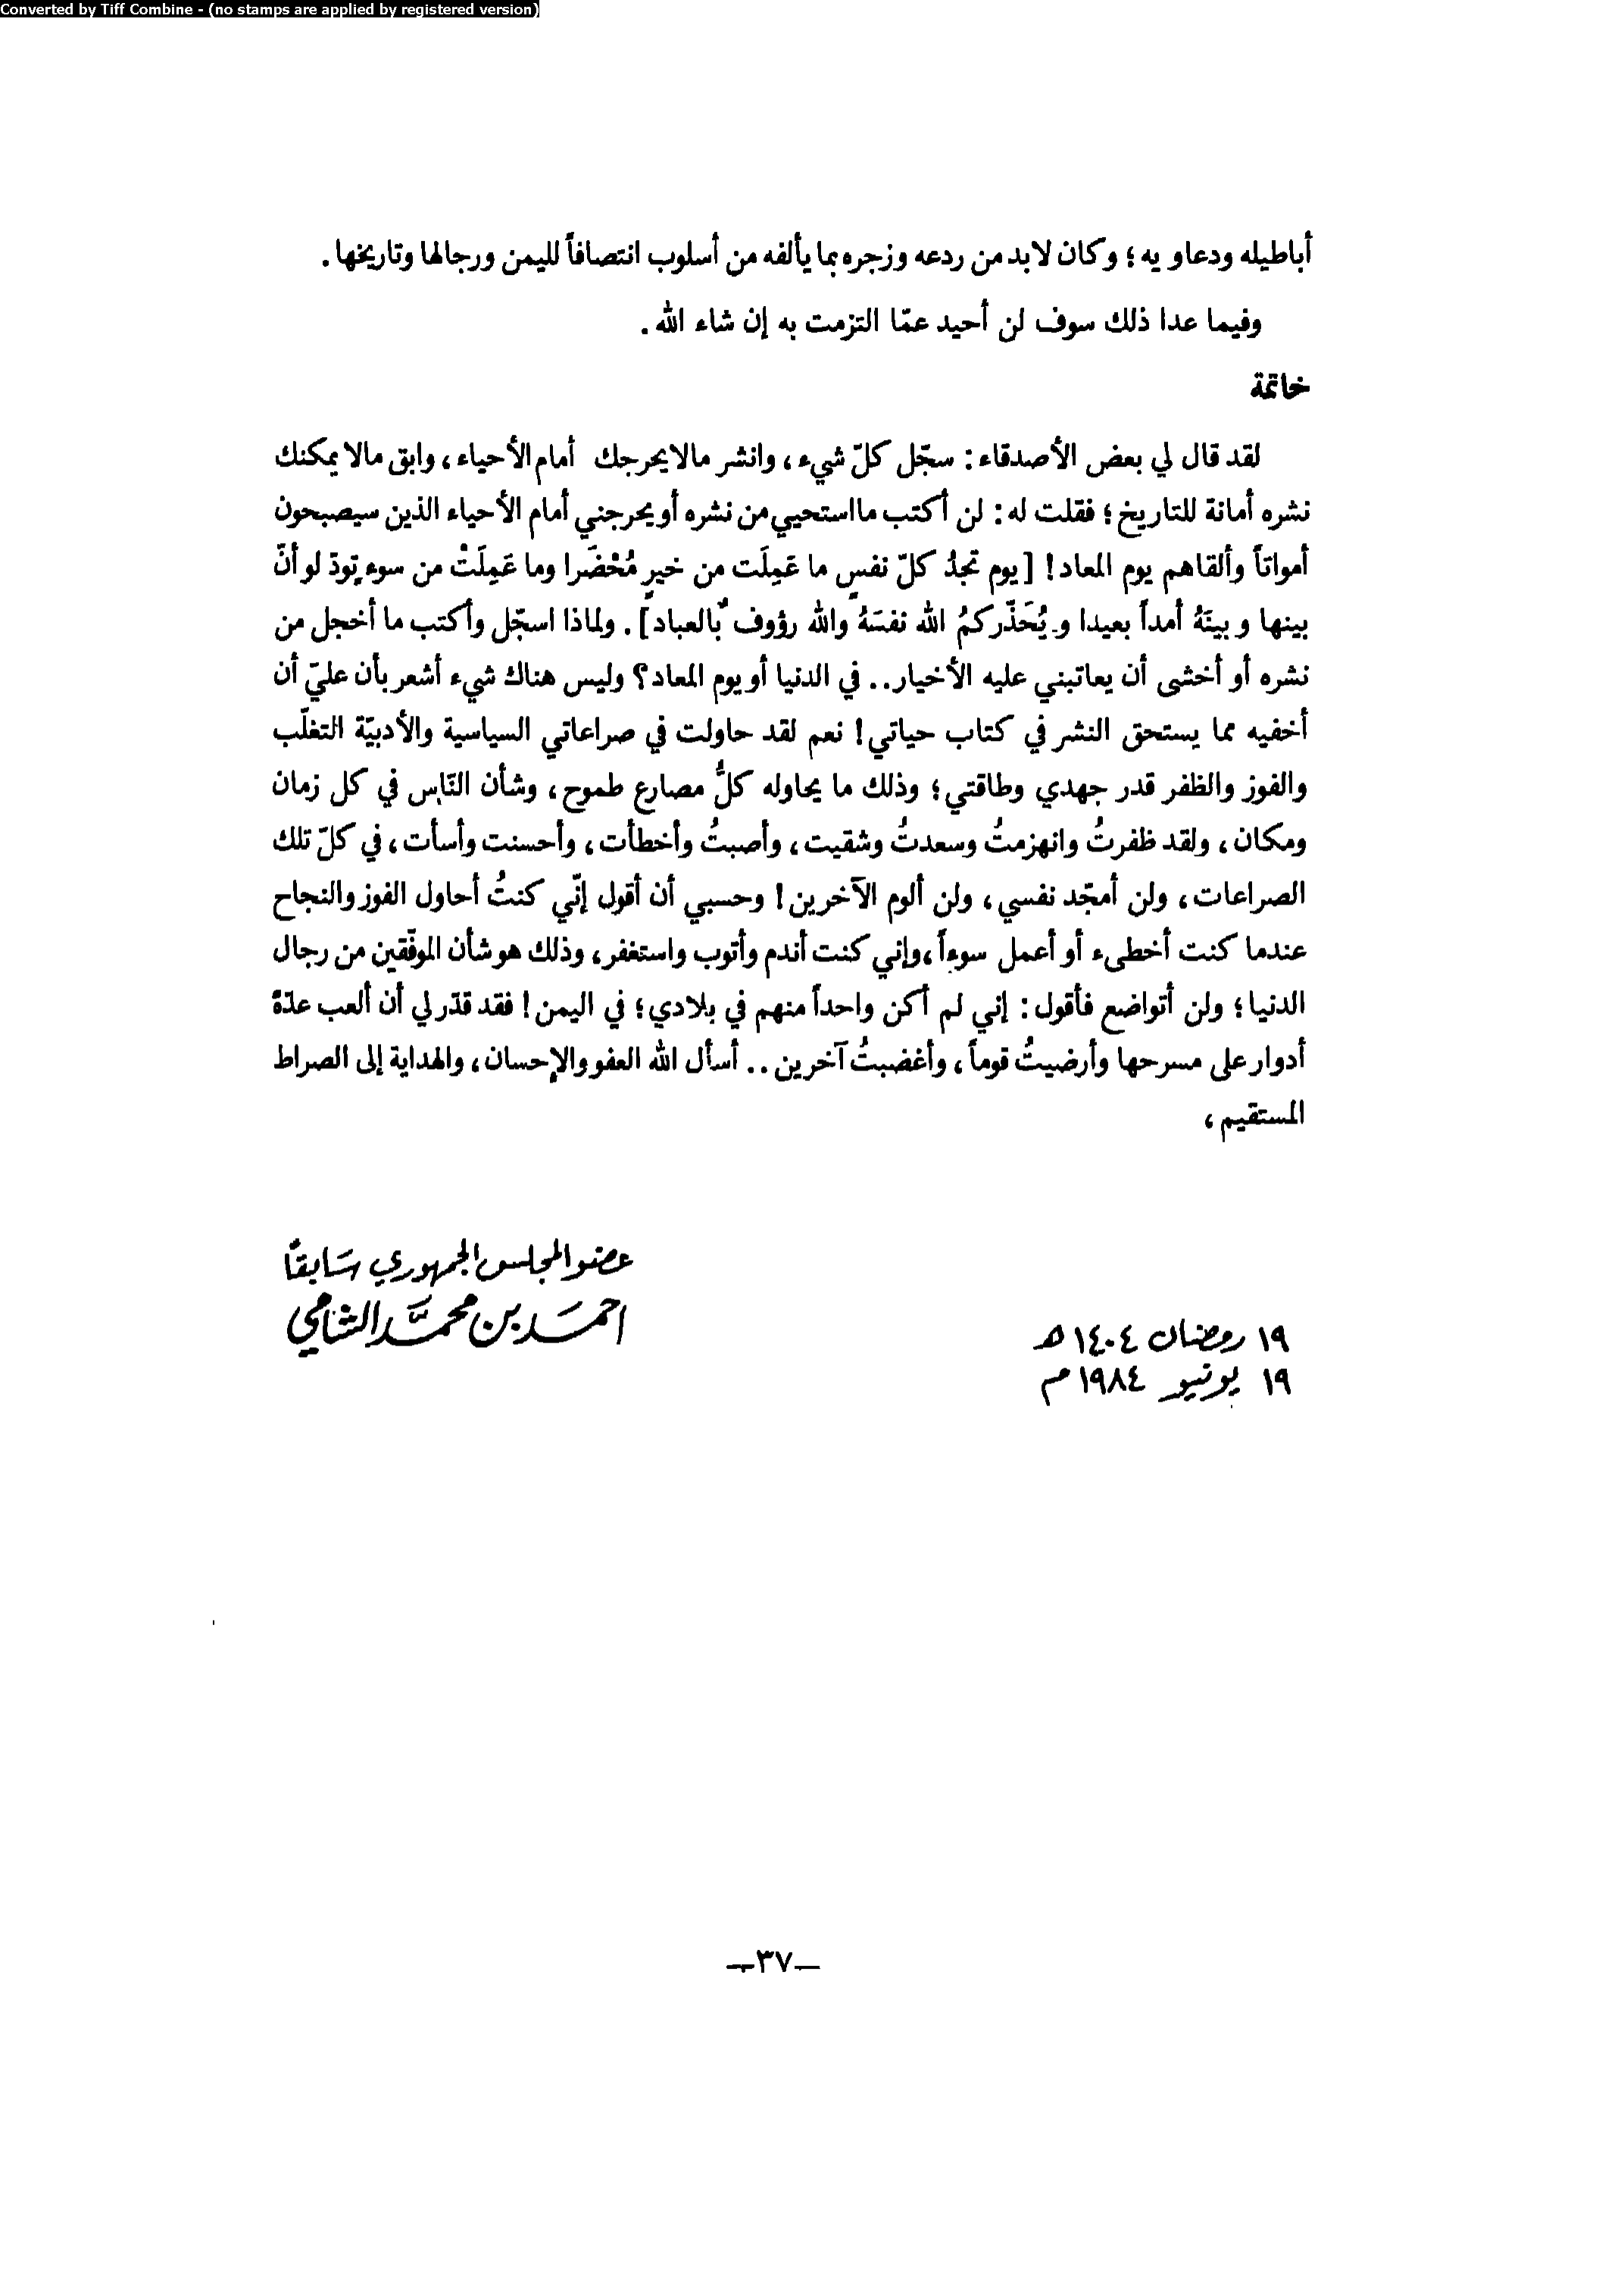 Converted by Tiff Combine - (no stamps are applied by registered version)
أباطيله ودعاويه ؛ وكان لابد من ردعه وزجره بما يألفه من أسلوب انتصافاً لليمن ورجالها وتاريخها .
وفيما عدا ذلك سوف لن أحيد عمّا التزمت به إن شاء الله .
خاتمة
لقد قال لي بعض الأصدقاء : سجّل كلّ شيء ، وانشر مالا يحرجك أمام الأحياء ، وابق مالا يمكنك
نشره أمانة للتاريخ ؛ فقلت له : لن أكتب ما استحيي من نشره أو يحرجني أمام الأحياء الذين سيصبحون
أمواتاً وألقاهم يوم المعاد ! [يوم تجدُ كلّ نفسٍ ما عَمِلَت من خيرٍ مُحْضَرا وما عَمِلَتْ من سوءٍ تودّ لو أنّ
بينها وبينَهُ أمداً بعيدا ويُحَذّركمُ الله نفسَهُ والله رؤوفٌ بالعباد] . ولماذا اسجّل وأكتب ما أخجل من
نشره أو أخشى أن يعاتبني عليه الأخيار .. في الدنيا أو يوم المعاد ؟ وليس هناك شيء أشعر بأن عليّ أن
أخفيه مما يستحق النشر في كتاب حياتي ! نعم لقد حاولت في صراعاتي السياسية والأدبيّة التغلّب
والفوز والظفر قدر جهدي وطاقتي ؛ وذلك ما يحاوله كلُّ مصارع طموح ، وشأن النّاس في كل زمان
ومكان ، ولقد ظفرتُ وانهزمتُ وسعدتُ وشقيت ، وأصبتُ وأخطأت ، وأحسنت وأسأت ، في كلّ تلك
الصراعات ، ولن أمجّد نفسي ، ولن ألوم الآخرين ! وحسبي أن أقول إنّي كنتُ أحاول الفوز والنجاح
عندما كنت أخطىء أو أعمل سوءاً ، وإني كنت أندم وأتوب واستغفر ، وذلك هو شأن الموفّقين من رجال
الدنيا ؛ ولن أتواضع فأقول : إني لم أكن واحداً منهم في بلادي ؛ في اليمن ! فقد قدّر لي أن ألعب عدّة
أدوار على مسرحها وأرضيتُ قوماً ، وأغضبتُ آخرين .. أسأل الله العفو والإحسان ، والهداية إلى الصراط
المستقيم ،
عضو المجلس الجمهوري سَابقاً
احمَد بن محمَّد الشامي
١٩ رمضان ١٤٠٤ هـ
١٩ يونيو ١٩٨٤ م
—٣٧—